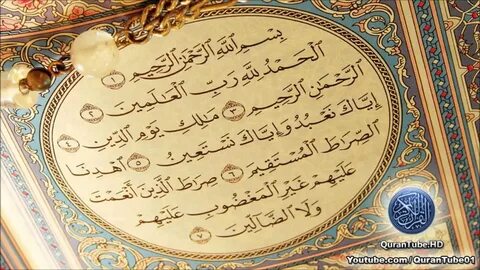 بِسْمِ ٱللَّهِ ٱلرَّحْمَٰنِ ٱلرَّحِيمِ ١
ٱلْحَمْدُ لِلَّهِ رَبِّ ٱلْعَٰلَمِينَ ٢
ٱلرَّحْمَٰنِ ٱلرَّحِيمِ ٣ مَٰلِكِ يَوْمِ ٱلدِّينِ ٤
إِيَّاكَ نَعْبُدُ وَإِيَّاكَ نَسْتَعِينُ ٥ ٱهْدِنَا
ٱلصِّرَٰطَ ٱلْمُسْتَقِيمَ ٦ صِرَٰطَ ٱلَّذِينَ أَنْعَمْتَ
عَلَيْهِمْ غَيْرِ ٱلْمَغْضُوبِ عَلَيْهِمْ
وَلَا ٱلضَّآلِّينَ ٧
QuranTube.HD
Youtube.com/QuranTube01